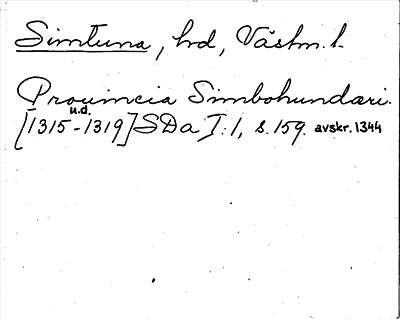 Simtuna, hd, Västm. l.
Prouincia Simbohundari.
u.d.
[1315-1319] SDa I:1, s. 159. avskr. 1344